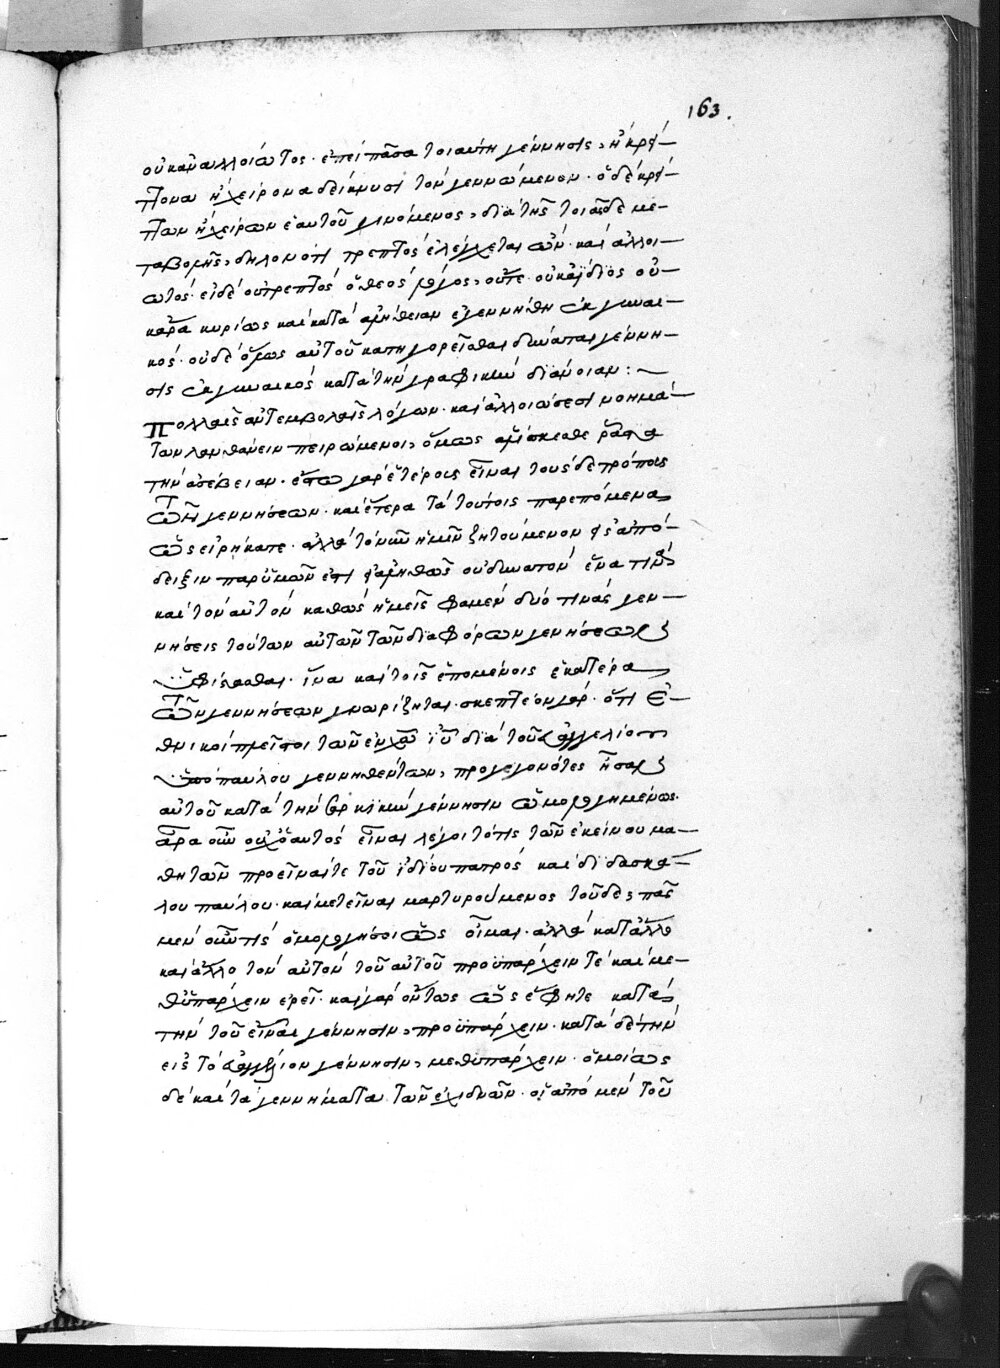 163.
οὐκ ἀναλλοιώτος. ἐπεὶ πᾶσα τοιαύτη γέννησις, ἢ κρεί-
ττονα ἢ χείρονα δείκνυσι τὸν γεννώμενον. ὁ δὲ κρεί-
ττων ἢ χείρων ἑαυτοῦ γινόμενος, διὰ τῆς τοιᾶσδε με-
ταβολῆς, δηλονότι τρεπτὸς ἐλέγχεται ὤν. καὶ ἀλλοι-
ωτός. εἰ δὲ οὐ τρεπτὸς ὁ θεὸς λόγος, οὔτε οὐκ ἀΐδιος οὐ-
κ ἄρα κυρίως καὶ κατὰ ἀλήθειαν ἐγεννήθη ἐκ γυναι-
κός. οὐδὲ ὅλως αὐτοῦ κατηγορεῖσθαι δύναται γέννη-
σις ἐκ γυναικὸς κατὰ τὴν γραφικὴν διάνοιαν :~
Πολλαῖς ἀντεμβολαῖς λόγων. καὶ ἀλλοιώσεσι νοημά-
των λανθάνειν πειρώμενοι, ὅμως ἁλίσκεσθε
τὴν ἀσέβειαν. ἔστω γὰρ ἑτέρους εἶναι τοὺς δὲ τρόπους
τῶν γεννήσεων. καὶ ἕτερα τὰ τούτοις παρεπόμενα
ὡς εἰρήκατε. ἀλλὰ τὸ νῦν ἡμῖν ζητούμενον
δειξιν παρ' ὑμῶν ἐστι ἀληθῶς οὐ δυνατὸν ἕνα τινὰ
καὶ τὸν αὐτὸν καθὼς ἡμεῖς φαμὲν δύο τινὰς γεν-
νήσεις τούτων αὐτῶν τῶν διαφόρων γεννήσεων
ὑφίστασθαι. ἵνα καὶ τοῖς ἑπομένοις ἑκατέρα
τῶν γεννήσεων γνωρίζηται. σκεπτέον γάρ. ὅτι ἐ-
θνικοὶ πλεῖστοι τῶν ἐν χῷ ἰῦ διὰ τοῦ εὐαγγελίου
ὑπὸ παύλου γεννηθέντων, προγεγονότες ἦσαν
αὐτοῦ κατὰ τὴν σαρκικὴν γέννησιν ὡμολογημένως.
ἆρα οὖν οὐχ ὁ αὐτὸς εἶναι λέγοιτό τις τῶν ἐκείνου μα-
θητῶν προεῖναί τε τοῦ ἰδίου πατρὸς καὶ διδασκά-
λου παύλου. καὶ μετεῖναι μαρτυρούμενος τοῦδε; πᾶς
μὲν οὖν τις ὁμολογήσοι ὡς οἶμαι. ἀλλὰ κατ' ἄλλο
καὶ ἄλλο τὸν αὐτὸν τοῦ αὐτοῦ προϋπάρχειν τὲ καὶ με-
θϋπάρχειν ἐρεῖ. καὶ γὰρ οὕτως ὡς ἔφητε κατὰ
τὴν τοῦ εἶναι γέννησιν, προϋπάρχειν. κατὰ δὲ τὴν
εἰς τὸ εὐαγγέλιον γέννησιν, μεθυπάρχειν. ὁμοίως
δὲ καὶ τὰ γεννήματα τῶν ἐχιδνῶν. οἱ ἀπὸ μὲν τοῦ